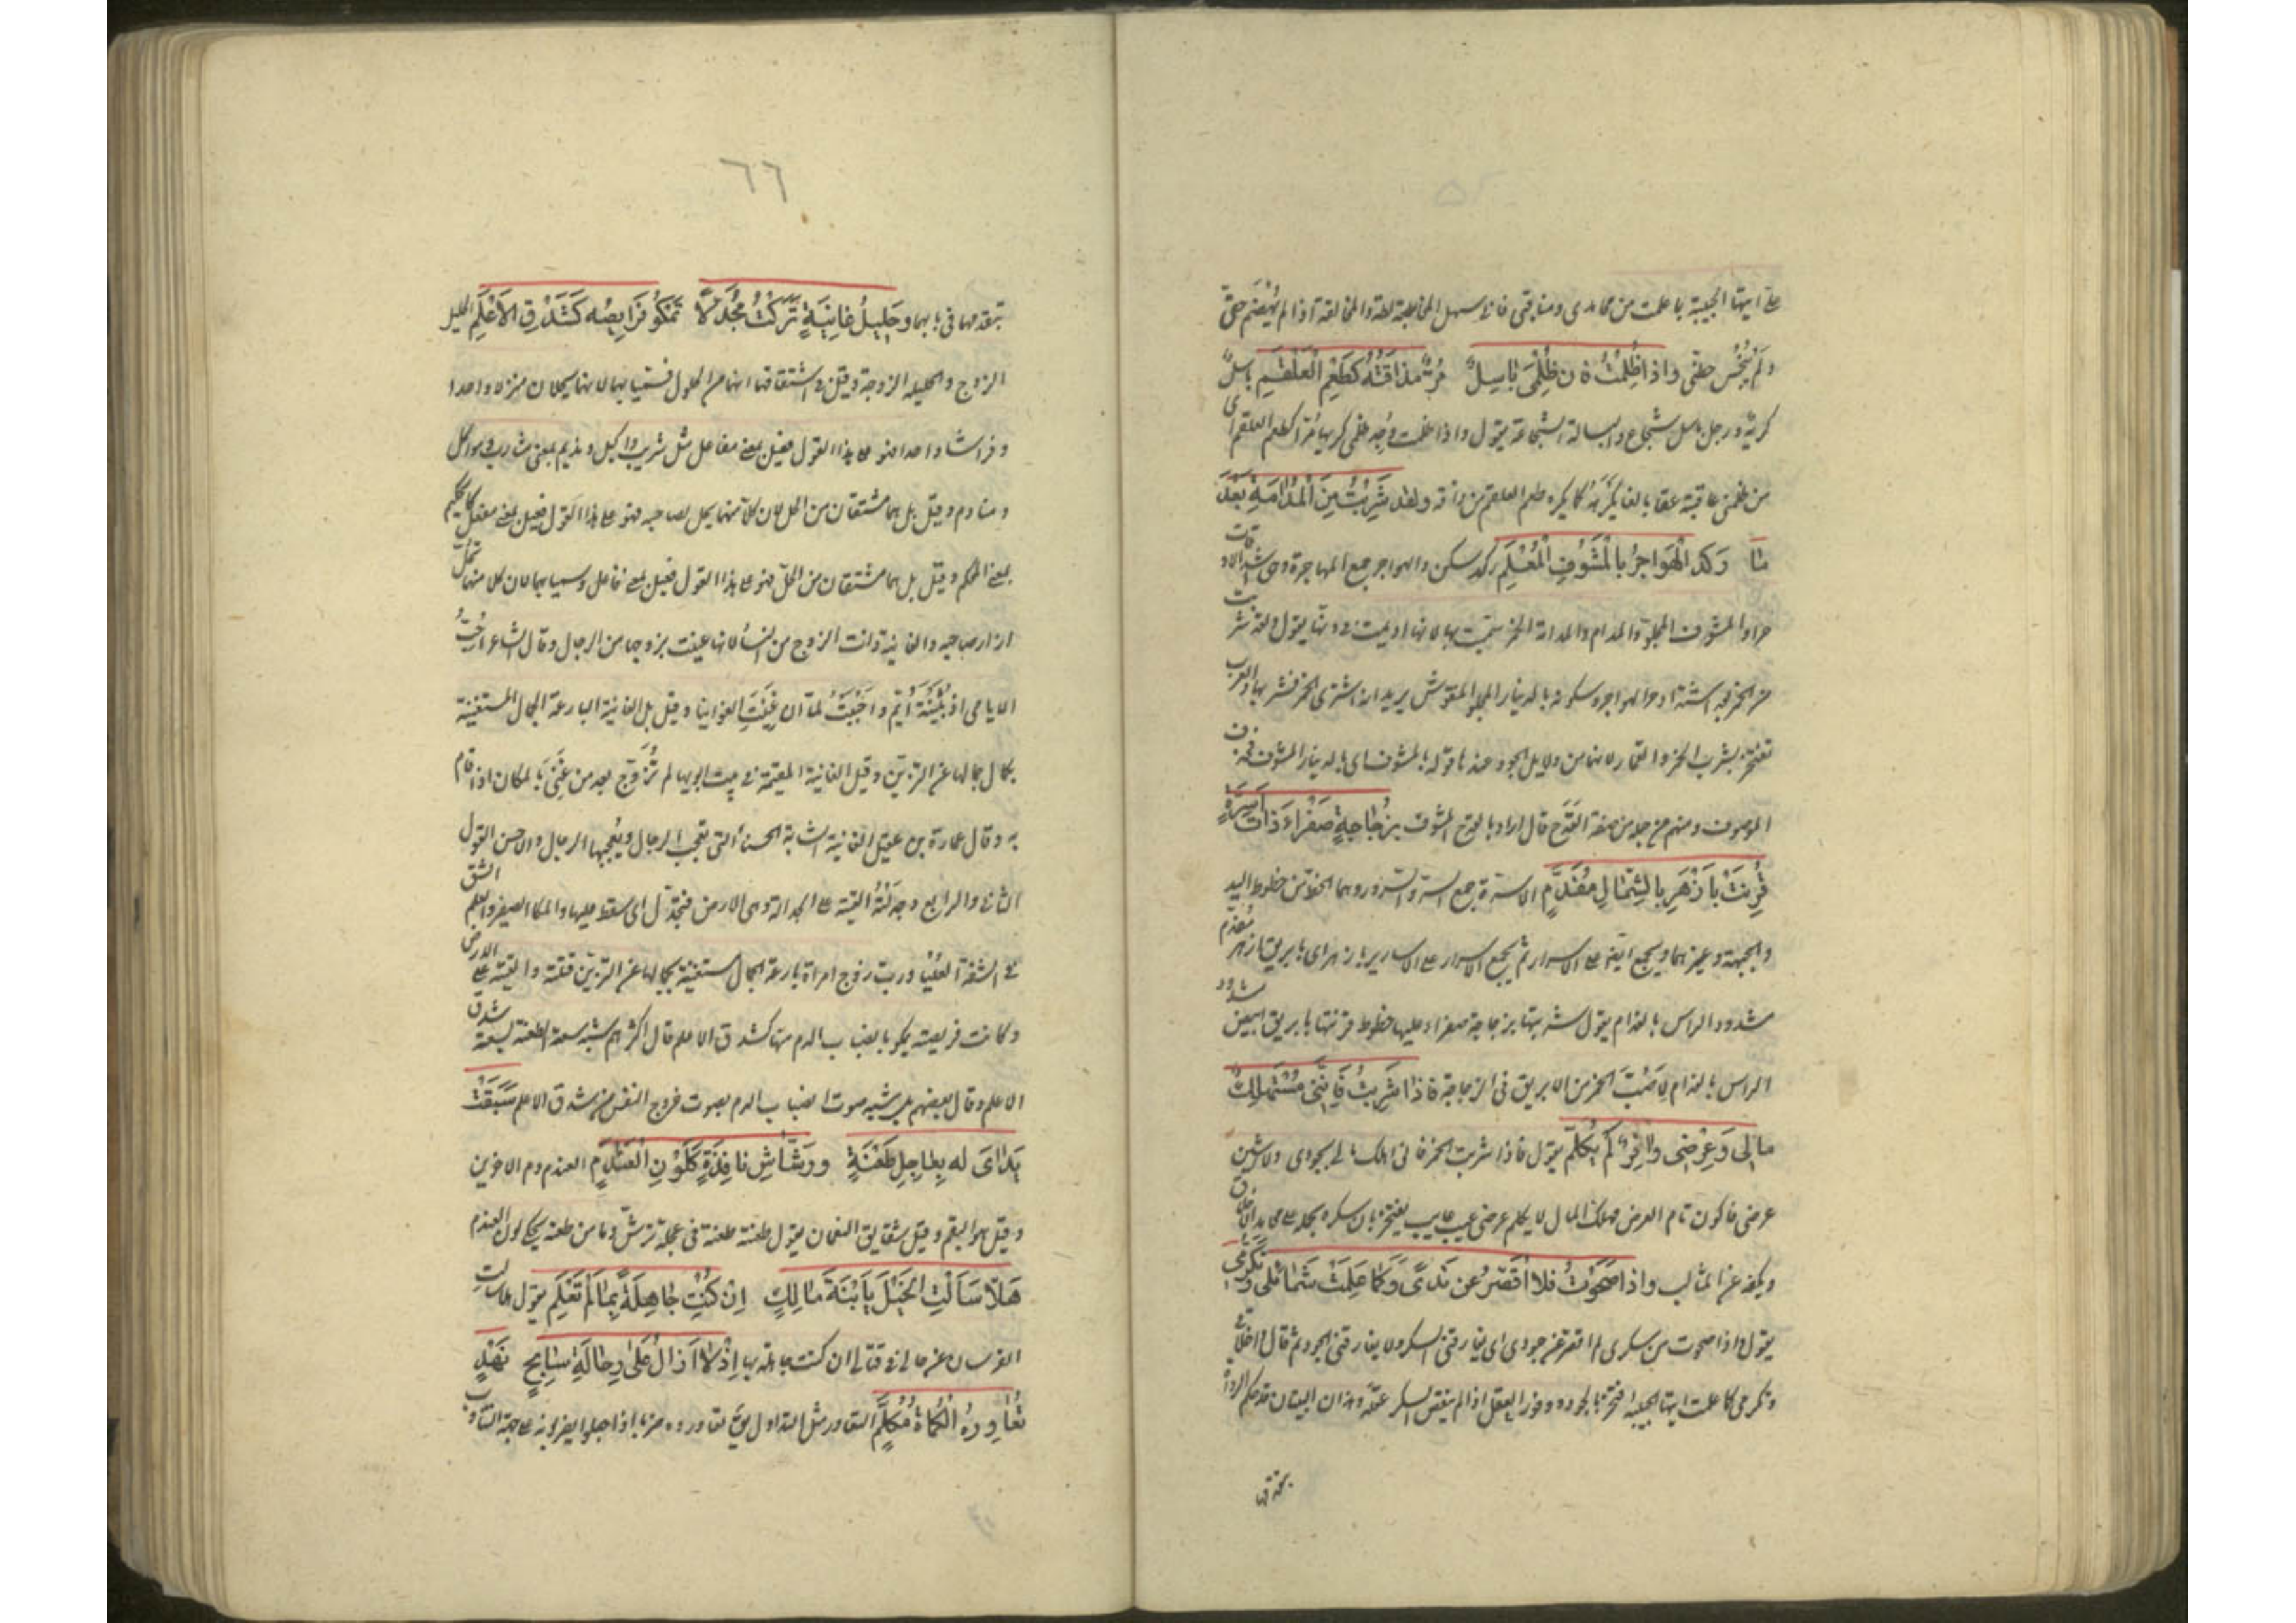 علي ايتها الحبيبة بما علمت من محامدي ومناقبي فاني سهل المخاطبة لطة والمخالقة اذا لم يهضم حقي
ولم يبخس حظي واذا ظلمت فان ظلمي باسل مر مذاقته كطعم العلقم باسل
كريه ورجل باسل شجاع والبسالة الشجاعة يقول واذا ظلمت وجد ظلمي كريها مرا كطعم العلقم اي
من ظلمني عاقبته عقابا بالغا يكرهه كما يكره طعم العلقم من ذاقه ولقد شربت من المدامة بعد
ما ركد الهواجر بالمشوف المعلم ركد سكن والهواجر جمع الهاجرة وهي اشد الاوقات
حرا والمشوف المجلو والمدام والمدامة الخمر سميت بها لانها اديمت في دنها يقول ولقد شربت
من الخمر بعد اشتداد حر الهواجر وسكونه بالدينار المجلو المنقوش يريد انه اشترى الخمر فشربها والعرب
تفتخر بشرب الخمر والقمار لانهما من دلايل الجود عندها قوله بالمشوف اي بالدينار المشوف فحذف
الموصوف ومنهم من جعله من صفة القدح قال اراد بالقدح المشوف بزجاجة صفراء ذات اسرة
قرنت بازهر بالشمال مفدم الاسرة جمع السر والسرر وهما الخط من خطوط اليد
والجبهة وغيرهما ويجمع ايضا على الاسرار ثم يجمع الاسرار على الاسارير بازهر اي بابريق ازهر مفدم
مشدود الراس بالفدام يقول شربتها بزجاجة صفراء عليها خطوط قرنتها بابريق ابيض مشدود
الراس بالفدام لاصب الخمر من الابريق في الزجاجة فاذا شربت فانني مستهلك
مالي وعرضي وافر لم يكلم يقول فاذا شربت الخمر فانني اهلك مالي بجودي ولا اشين
عرضي فاكون تام العرض مهلك المال لا يكلم عرضي عيب عايب يفتخر بان سكره يحمله على محامد الاخلاق
ويكفه عن المثالب واذا صحوت فلا اقصر عن ندى وكما علمت شمائلي وتكرمي
يقول واذا صحوت من سكري لم اقصر عن جودي اي يفارقني السكر ولا يفارقني الجود ثم قال واخلاقي
وتكرمي كما علمت ايتها الحبيبة افتخر بالجود ووفور العقل اذا لم ينقص السكر عقله وهذان البيتان قد حكم الرواة
بتقدمهما في بابهما وحليل غانية تركت مجدلا تمكو فرايصه كشدق الاعلم الحليل
الزوج والحليلة الزوجة وقيل في اشتقاقهما انهما من الحلول فسميا بها لانهما يحلان منزلا واحدا
وفراشا واحدا فهو على هذا القول فعيل بمعنى مفاعل مثل شريب واكيل ونديم بمعنى مشارب ومواكل
ومنادم وقيل بل هما مشتقان من الحل لان كلا منهما يحل لصاحبه فهو على هذا القول فعيل بمعنى مفعل كالحكيم
بمعنى المحكم وقيل بل هما مشتقان من الحل فهو على هذا القول فعيل بمعنى فاعل وسميا بهما لان كلا منهما تحل
ازار صاحبه والغانية ذات الزوج من النساء لانها غنيت بزوجها من الرجال وقال الشاعر احب
الايامى اذ بثينة ايم واحببت لما ان غنيت الغوانيا وقيل بل الغانية البارعة الجمال المستغنية
بكمال جمالها عن التزين وقيل الغانية المقيمة في بيت ابويها لم تزوج بعد من غني بالمكان اذا قام
به وقال عمارة بن عقيل الغانية الشابة الحسناء التي تعجب الرجال ويعجبها الرجال والاحسن القول
الثاني والرابع وجدلته القيته على الجدالة وهي الارض فتجدل اي سقط عليها والمكا الصفير والعلم الشق
في الشفة العليا ورب زوج امراة بارعة الجمال مستغنية بجمالها عن التزين قتلته والقيته على الارض
وكانت فريصته تمكو بانصباب الدم منها كشدق الاعلم قال اكثرهم شبه سعة الطعنة بسعة شدق
الاعلم وقال بعضهم بل شبه صوت انصباب الدم بصوت خروج النفس من شدق الاعلم سبقت
يداي له بعاجل طعنة ورشاش نافذة كلون العندم العندم دم الاخوين
وقيل هو البقم وقيل شقايق النعمان يقول طعنته طعنة في عجلة ترش دما من طعنة يحكي لون العندم
هلا سالت الخيل يابنة مالك ان كنت جاهلة بما لم تعلم يقول هلا سالت
الفرسان عن حالي في قتالي ان كنت جاهلة بها اذ لا ازال على رحالة سابح نهد
تعاوره الكماة مكلم التعاور مثل التداول يقال تعاوروه ضربا اذا جعلوا يضربونه على جهة التناوب